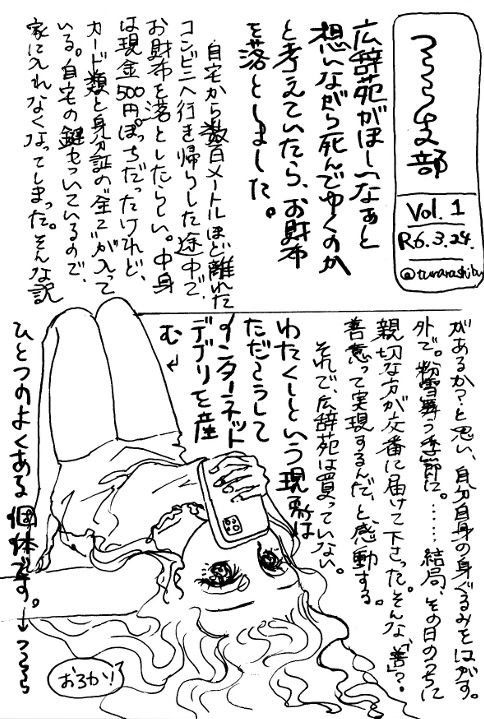 つららし支部
Vol.1
R6.3.24.
広辞苑がほしいなぁと
想いながら死んでゆくのか
と考えていたら、お財布
を落としました。
自宅から数百メートルほど離れた
コンビニへ行き帰りした途中で、
お財布を落としたらしい。中身
は現金500円ぽっちだったけれど、
カード類と身分証の全てが入って
いる。自宅の鍵もついているので、
家に入れなくなってしまった。そんな訳
があるか?と思い、自分自身の身ぐるみをはがす。
外で。粉雪舞う季節に。……結局、その日のうちに
親切な方が交番に届けて下さった。そんな「善」?
善意って実現するんだ、と感動する。
それで、広辞苑は買っていない。
わたくしという現象は
ただこうして
インターネット
デブリを産
む↓
ひとつのよくある個体です。→つらら
おろかり